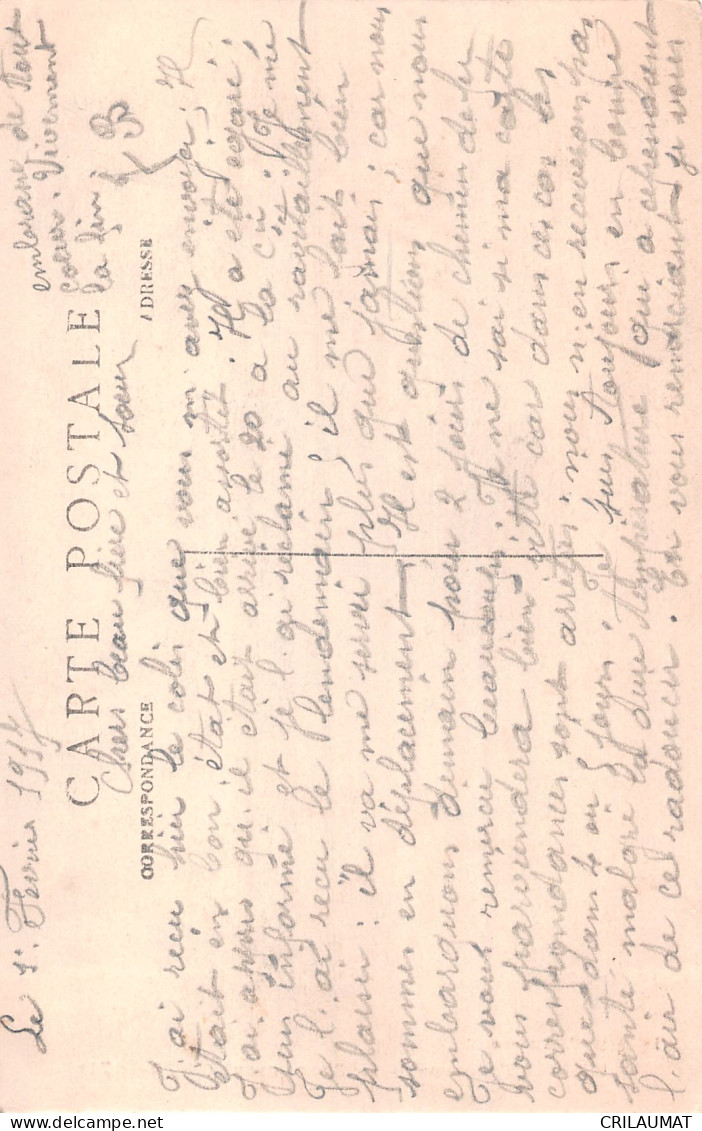 Le 1er Février 1917
CARTE POSTALE
CORRESPONDANCE
ADRESSE
Chers beau frère et sœur
J'ai reçu hier le colis que vous m'avez envoyer; Il
était en bon état et bien assortit. Il a été égaré;
J'ai appris qu'il était arrivé le 20 a la Cie; Je me
suis informé et je l'ai réclamé au ravitaillement
Je l'ai reçu le lendemain; il me fait bien
plaisir: il va me servir plus que jamais; car nous
sommes en déplacement; Il est questions que nous
embarquons demain pour 2 jours de chemin de fer
Je vous remercie beaucoups; Je ne sai si ma carte
vous parviendra bien vite car dans ces cas les
correspondances sont arrêtés; nous n'en receverons pas
que dans 4 ou 5 jours. Je suis toujours en bonne
santé malgré la dure température qui a cependant
l'air de ce radoucir. En vous remerciant je vous
embrasse de tout
cœur. Vivement
la fin!
CRILAUMAT